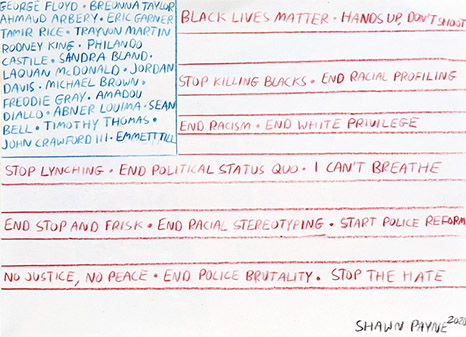 GEORGE FLOYD • BREONNA TAYLOR
AHMAUD ARBERY • ERIC GARNER
TAMIR RICE • TRAYVON MARTIN
RODNEY KING • PHILANDO
CASTILE • SANDRA BLAND •
LAQUAN McDONALD • JORDAN
DAVIS • MICHAEL BROWN •
FREDDIE GRAY • AMADOU
DIALLO • ABNER LOUIMA • SEAN
BELL • TIMOTHY THOMAS •
JOHN CRAWFORD III • EMMETT TILL
BLACK LIVES MATTER • HANDS UP, DON'T SHOOT
STOP KILLING BLACKS • END RACIAL PROFILING
END RACISM • END WHITE PRIVILEGE
STOP LYNCHING • END POLITICAL STATUS QUO • I CAN'T BREATHE
END STOP AND FRISK • END RACIAL STEREOTYPING • START POLICE REFORM
NO JUSTICE, NO PEACE • END POLICE BRUTALITY • STOP THE HATE
SHAWN PAYNE 2020